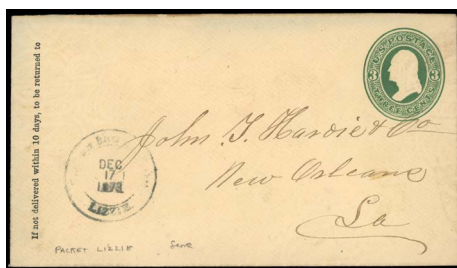 If not delivered within 10 days, to be returned to
U.S. POSTAGE
3 3
THREE CENTS
DEC
17
LIZZIE
John T. Hardie & Co
New Orleans
La
PACKET LIZZIE